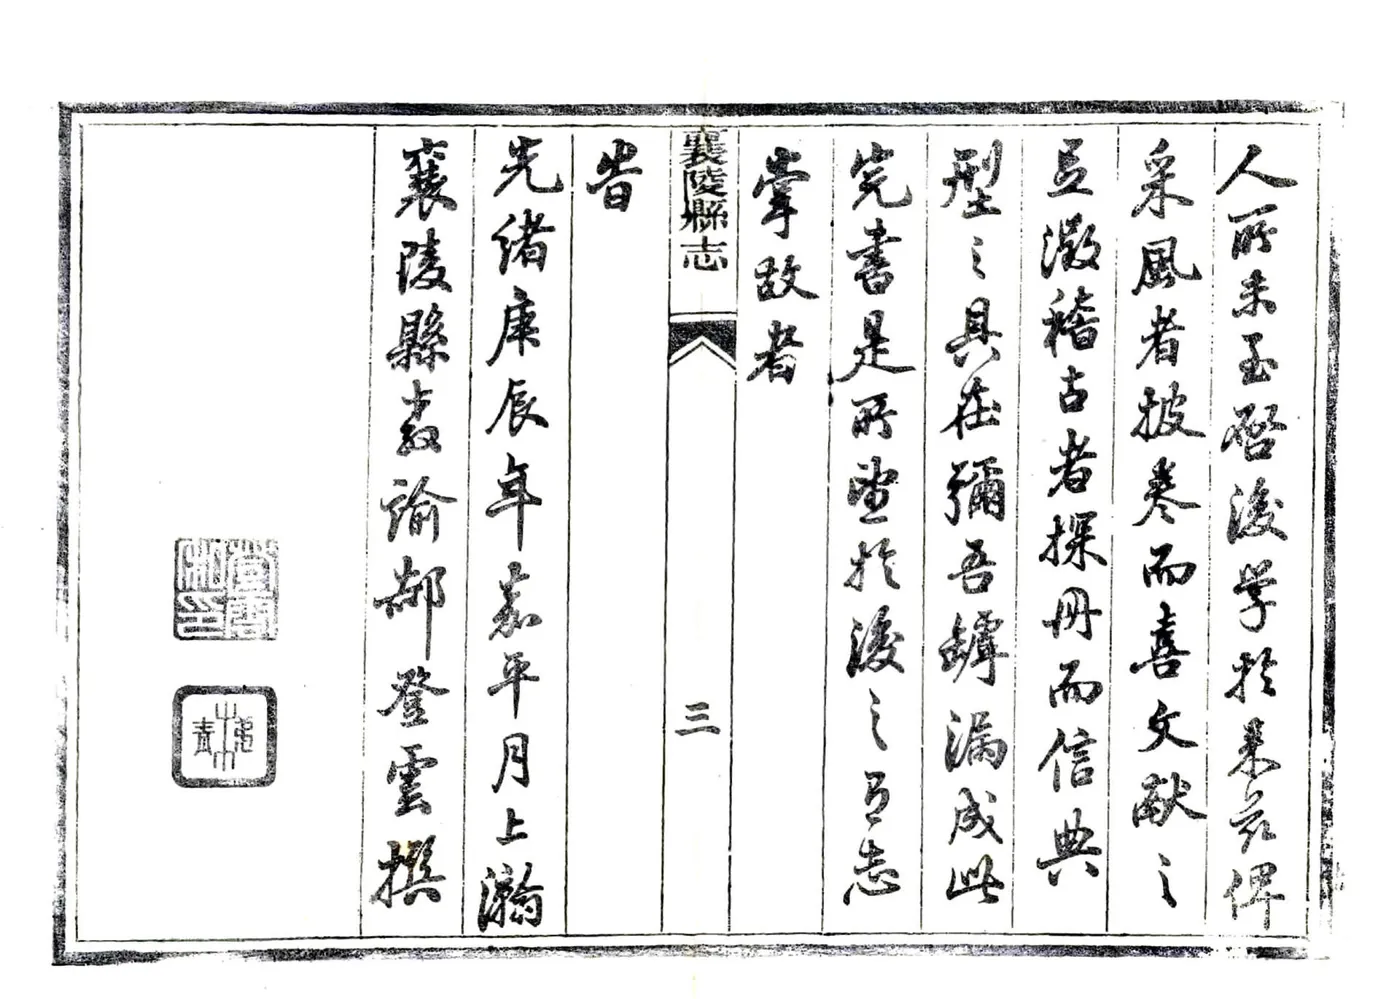 人所未至啓後學於來茲俾
采風者披卷而喜文献之
足徵稽古者探冊而信典
型之具在彌吾罅漏成此
完書是所望於後之有志
掌故者
襄陵縣志
三
旹
光緒庚辰年嘉平月上瀚
襄陵縣教諭郝登雲撰